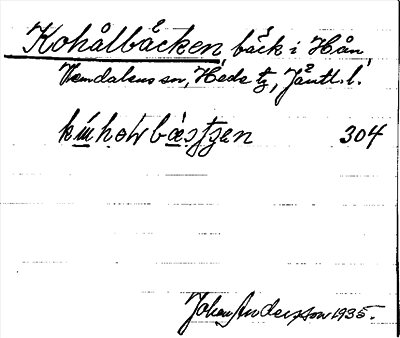 Kohålbäcken bäck i Hån
Vemdalens sn, Heds tg, Jämtl. l.
304
Johan Anderson 1935.